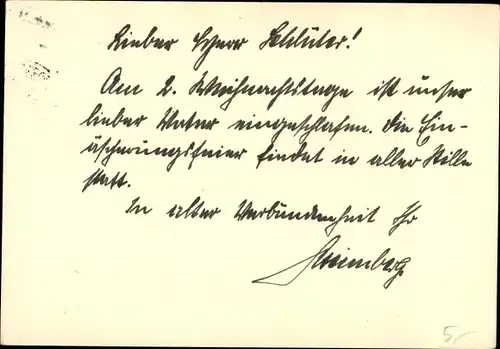 Lieber Herr Schlüter!
Am 2. Weihnachtstage ist unser
lieber Vater eingeschlafen. Die Ein-
äscherungsfeier findet in aller Stille
statt.
In alter Verbundenheit Ihr
Steinberg.
5,-